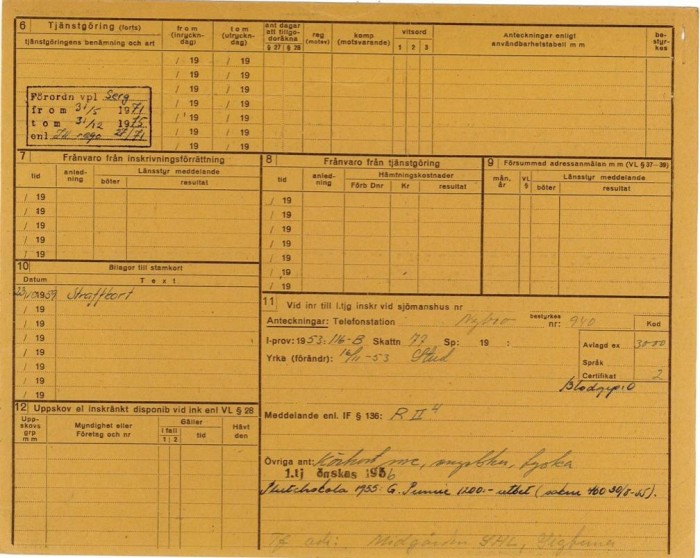 6 Tjänstgöring (forts)
tjänstgöringens benämning och art
from (inryckn-dag)
tom (utryckn-dag)
ant dagar att tillgodoräkna
§ 27 § 28
reg (motsv)
komp (motsvarande)
vitsord
1 2 3
Anteckningar enligt användbarhetstabell m m
be-styr-kes
/ 19 / 19
/ 19 / 19
/ 19 / 19
/ 19 / 19
/ 19 / 19
/ 19 / 19
Förordn vpl Serg
from 31/5 1971
tom 31/12 1975
enl 27/71
7 Frånvaro från inskrivningsförrättning
tid
anled-ning
Länsstyr meddelande
böter resultat
/ 19
/ 19
/ 19
/ 19
/ 19
8 Frånvaro från tjänstgöring
tid
anled-ning
Hämtningskostnader
Förb Dnr Kr
resultat
/ 19
/ 19
/ 19
/ 19
/ 19
/ 19
9 Försummad adressanmälan m m (VL § 37-39)
mån. år
VL §
Länsstyr meddelande
böter resultat
10 Bilagor till stamkort
Datum Text
1957 Straffkort
/ 19
/ 19
/ 19
/ 19
/ 19
11 Vid inr till I.tjg inskr vid sjömanshus nr
Anteckningar: Telefonstation Nybro bestyrkes nr: 940
I-prov: 1953:116-B Skattn 77 Sp: 19 :
Yrke (förändr) -53 Stud
Kod
Avlagd ex 3000
Språk
Certifikat 2
Blodgrp: O
Meddelande enl. IF § 136: R II 4
12 Uppskov el inskränkt disponib vid ink enl VL § 28
Upp-skovs grp m m
Myndighet eller Företag och nr
Gäller
i fall 1 2
tid
Hävt den
Övriga ant: Körkort mc, tyska
1.tj önskas 1956
1955: 1200:-
Tf adr: Midgården